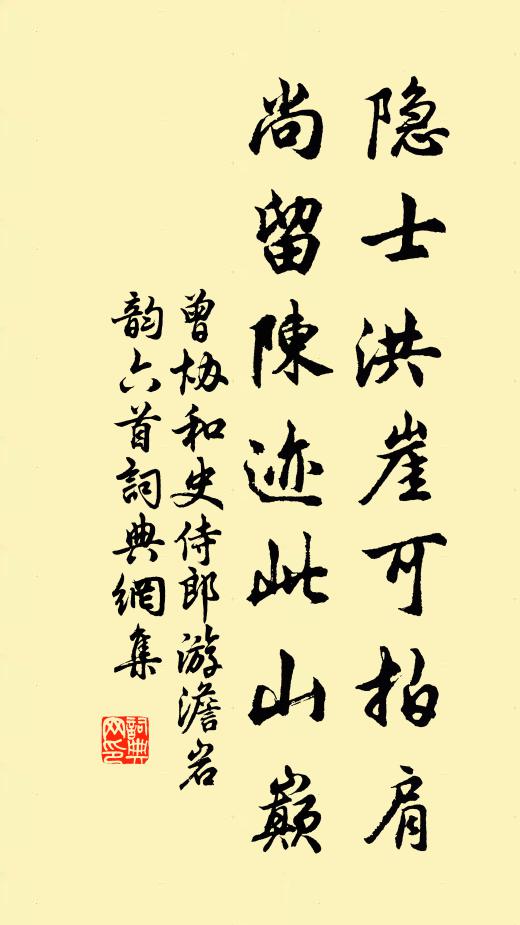 隐士洪崖可拍肩
尚留陳迹此山巔
曾协和史侍郎游澹岩
韵六首詞典網集
詞典網印